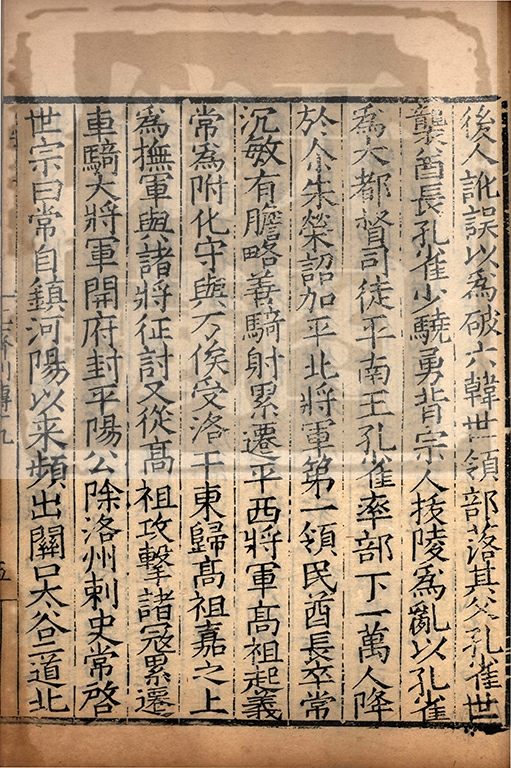 後人訛誤以為破六韓世領部落其父孔雀世
襲酋長孔雀少驍勇背宗人拔陵為亂以孔雀
為大都督司徒平南王孔雀率部下一萬人降
於尒朱榮詔加平北將軍第一領民酋長卒常
沉敏有膽略善騎射累遷平西將軍髙祖起義
常為附化守與万俟受洛干東歸髙祖嘉之上
為撫軍與諸將征討又從髙祖攻擊諸冦累遷
車騎大將軍開府封平陽公除洛州刺史常啓
世宗曰常自鎮河陽以来頻出關口太谷二道北